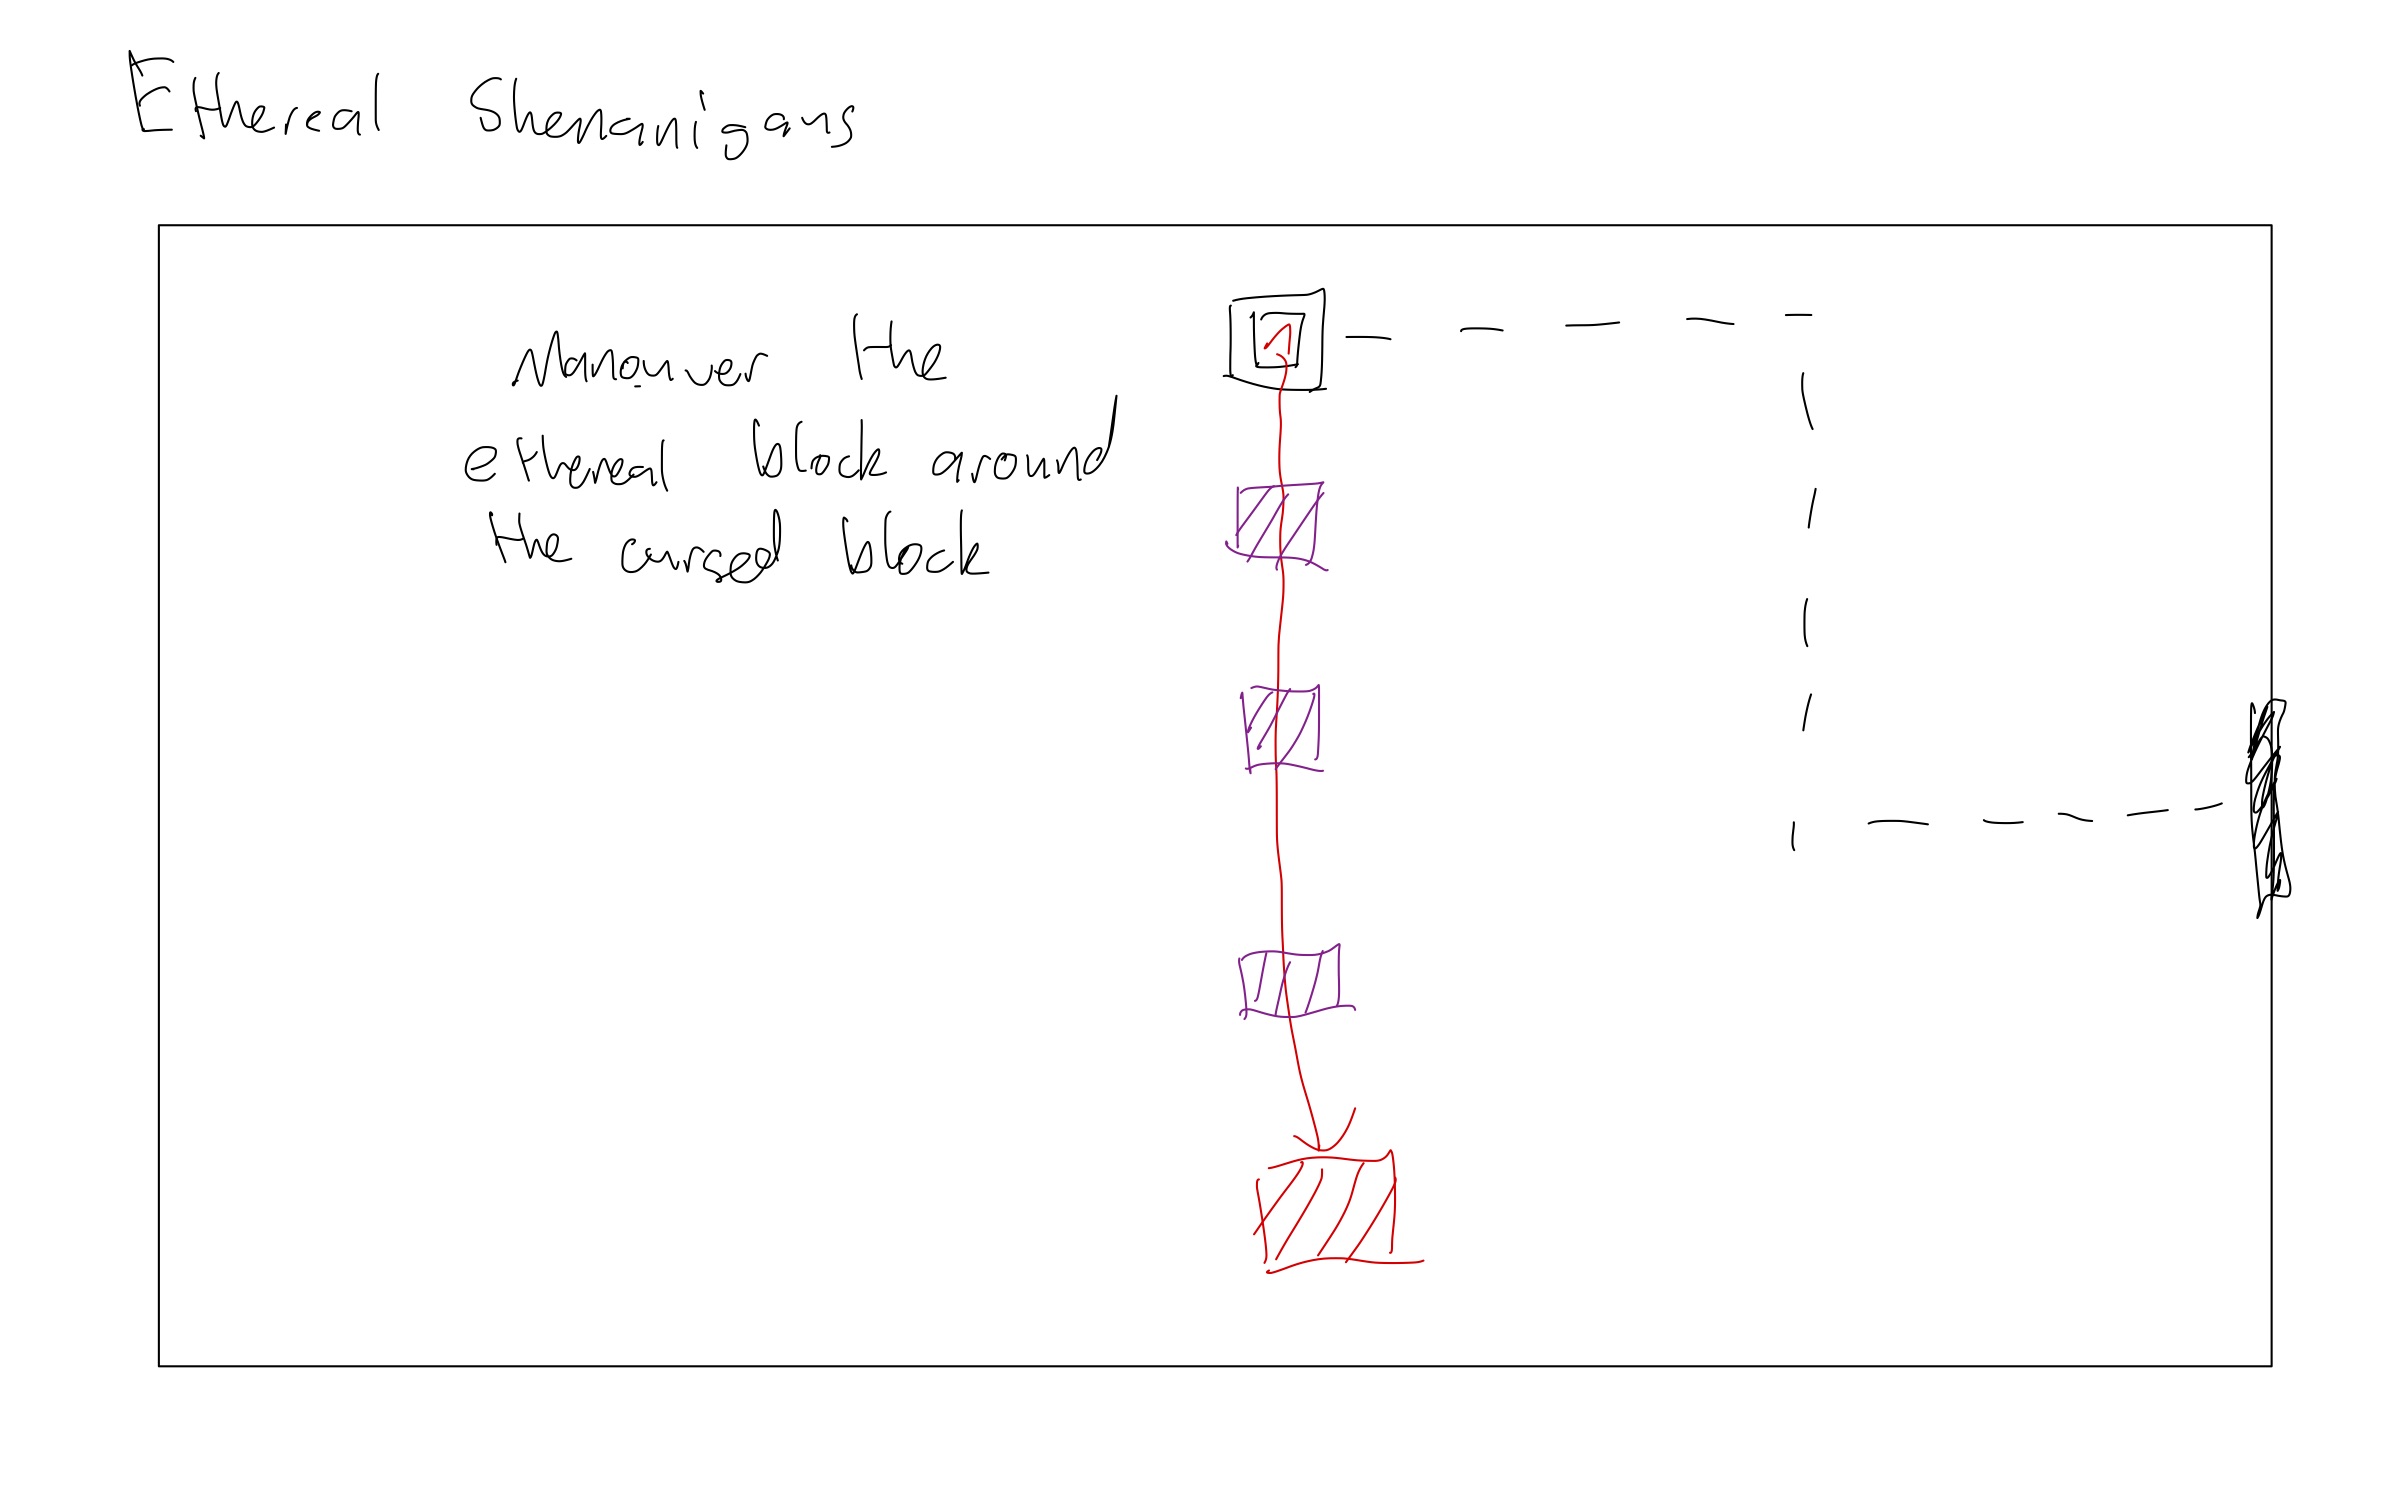 Ethereal Shenanigans
Maneuver the
ethereal block around
the cursed block